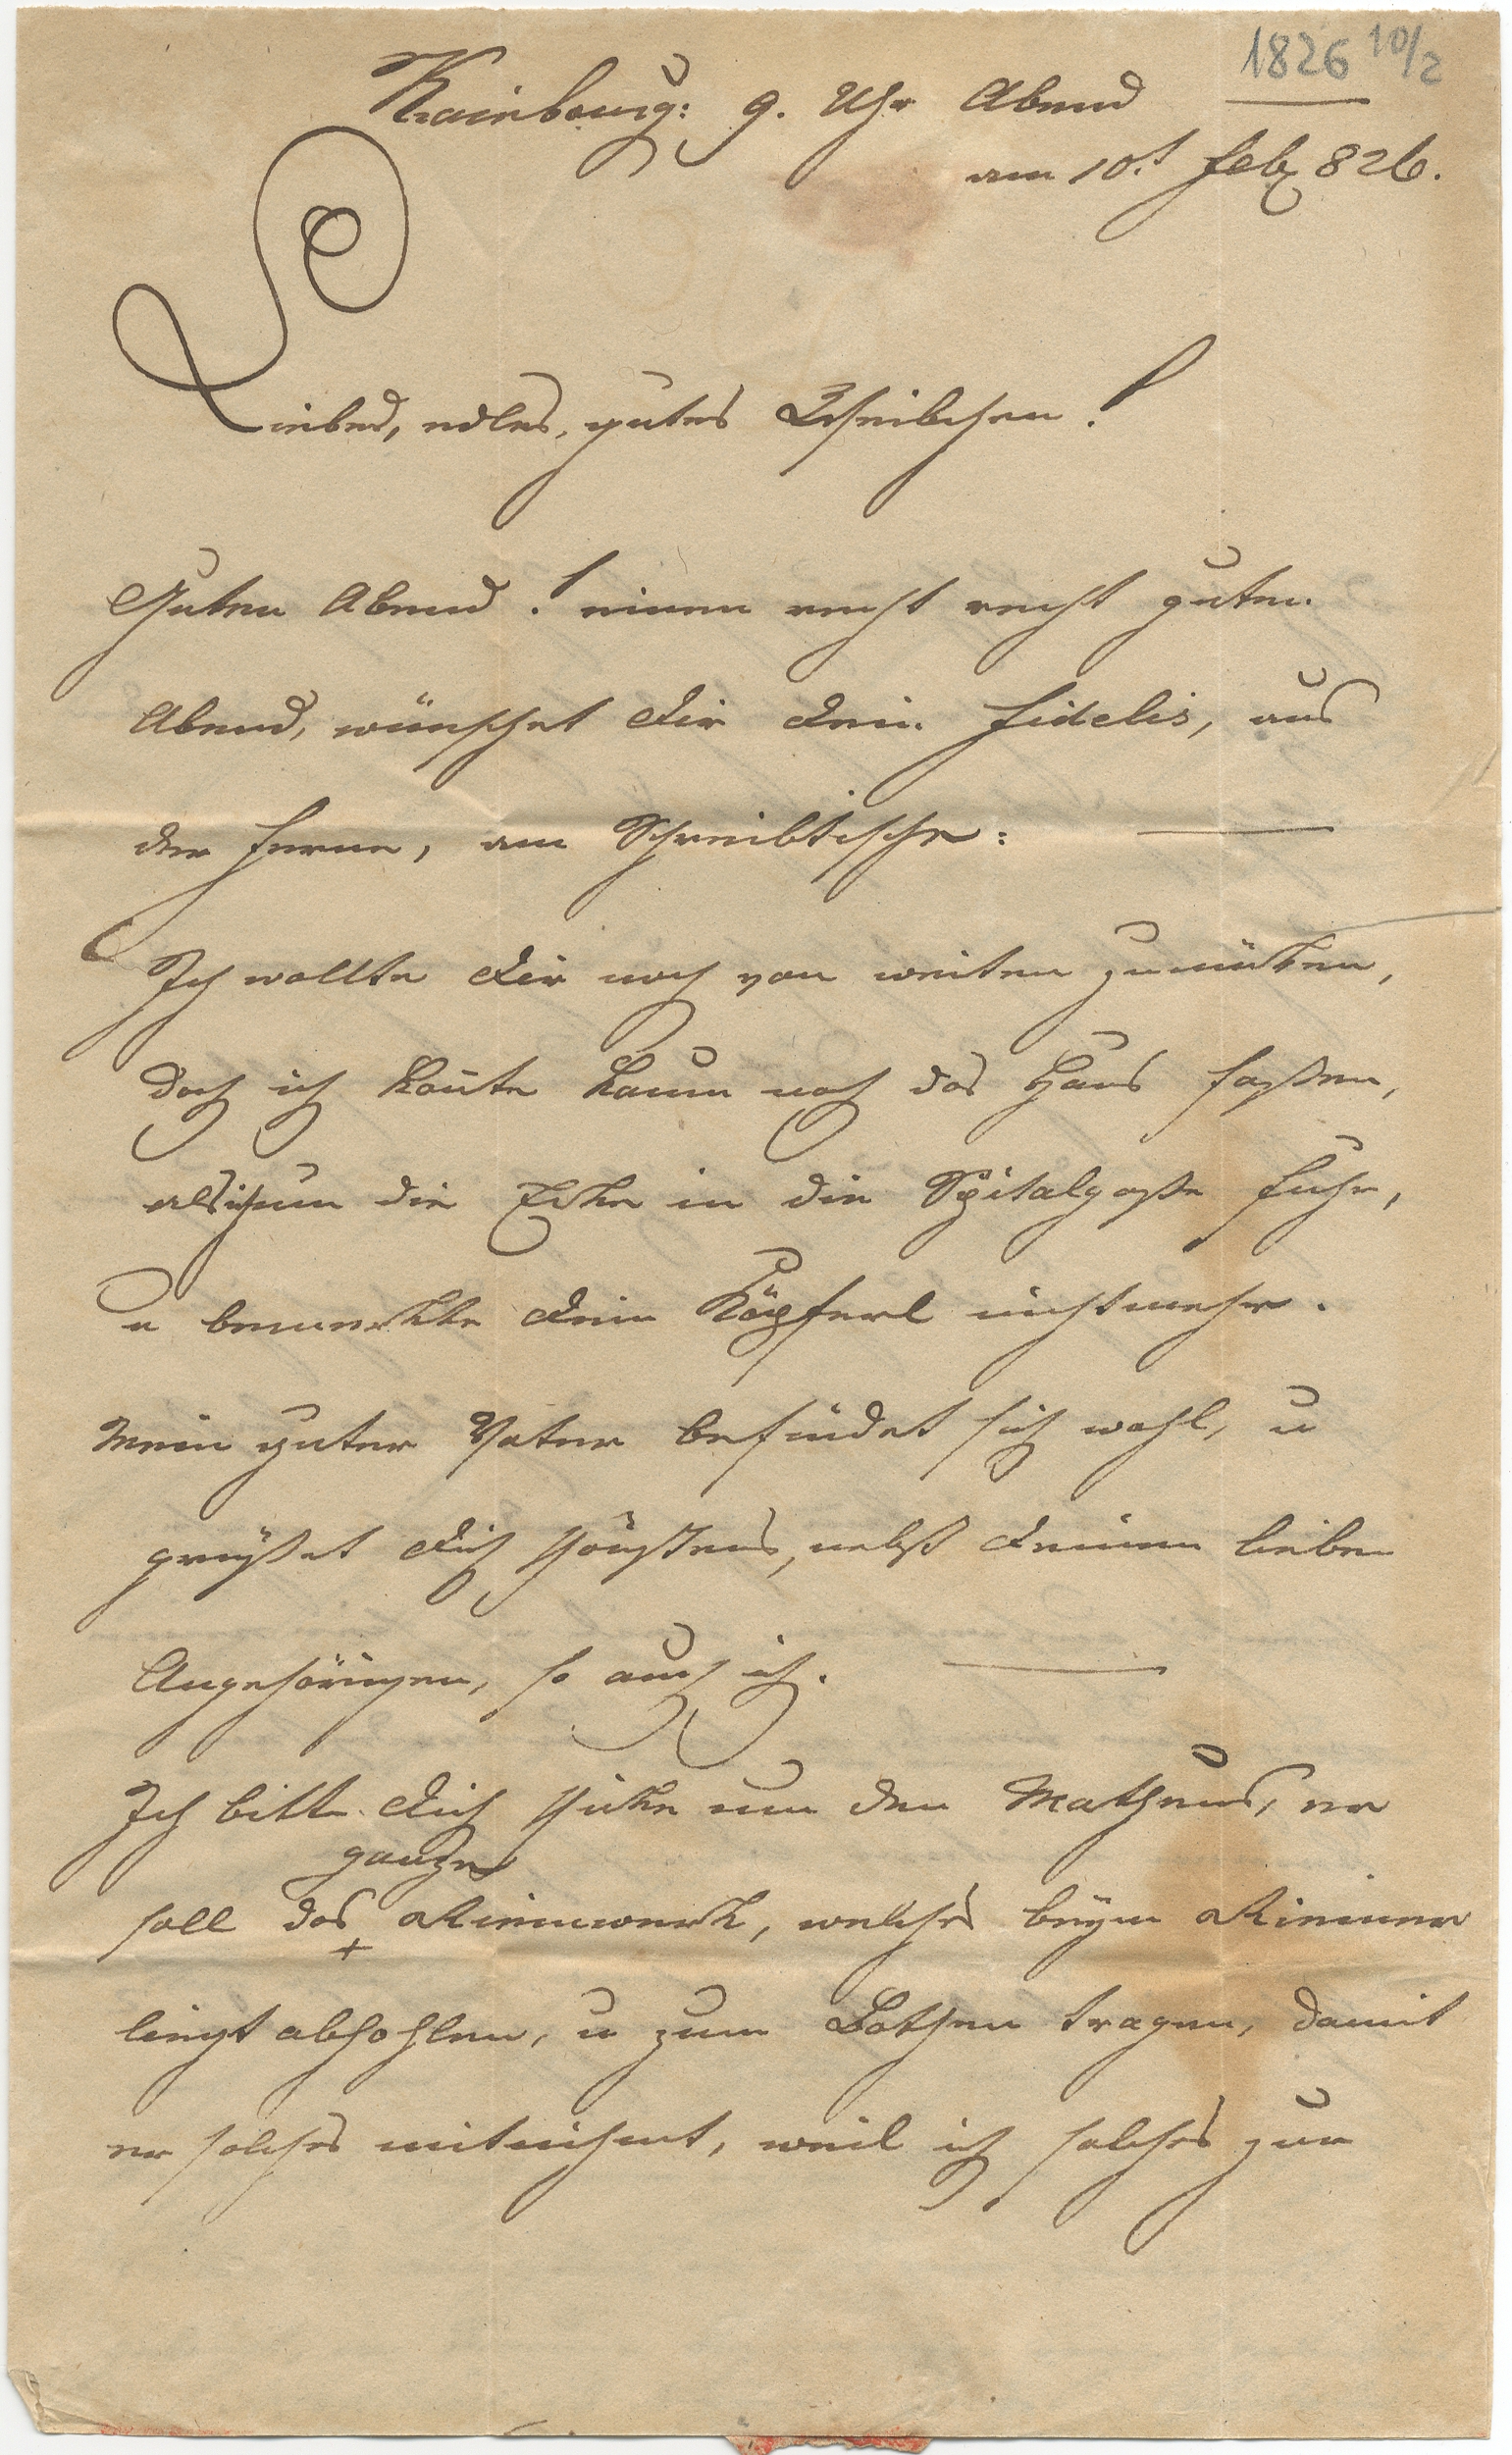 1826 10/2
Krainburg: 9. Uhr Abend
am 10.t Feb 826.
Liebes, edles, gutes Weibchen!
Guten Abend! einen recht recht guten
Abend, wünschet dir dein Fidelis, aus
der Ferne, am Schreibtische:
Ich wollte dir noch von weiten zuwinken,
doch ich konte kaum noch das Haus fassen,
als ich um die Ecke in die Spitalgasse fuhr,
u bemerkte dein Köpferl nicht mehr.
Mein guter Vater befindet sich wohl, u
grüßet dich schönstens, nebst deinen lieben
Angehörigen, so auch ich.
Ich bitte dich schicke um den Matheus, er
ganze
soll das Riemwerk, welches beym Riemer
+
liegt abhohlen, u zum Bothen tragen, damit
er solches mitnihmt, weil ich solches zur